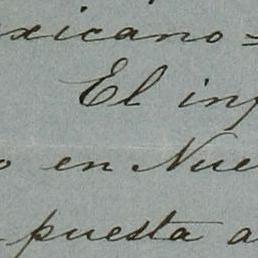 exicano=
El inf
o en Nue
puesta a